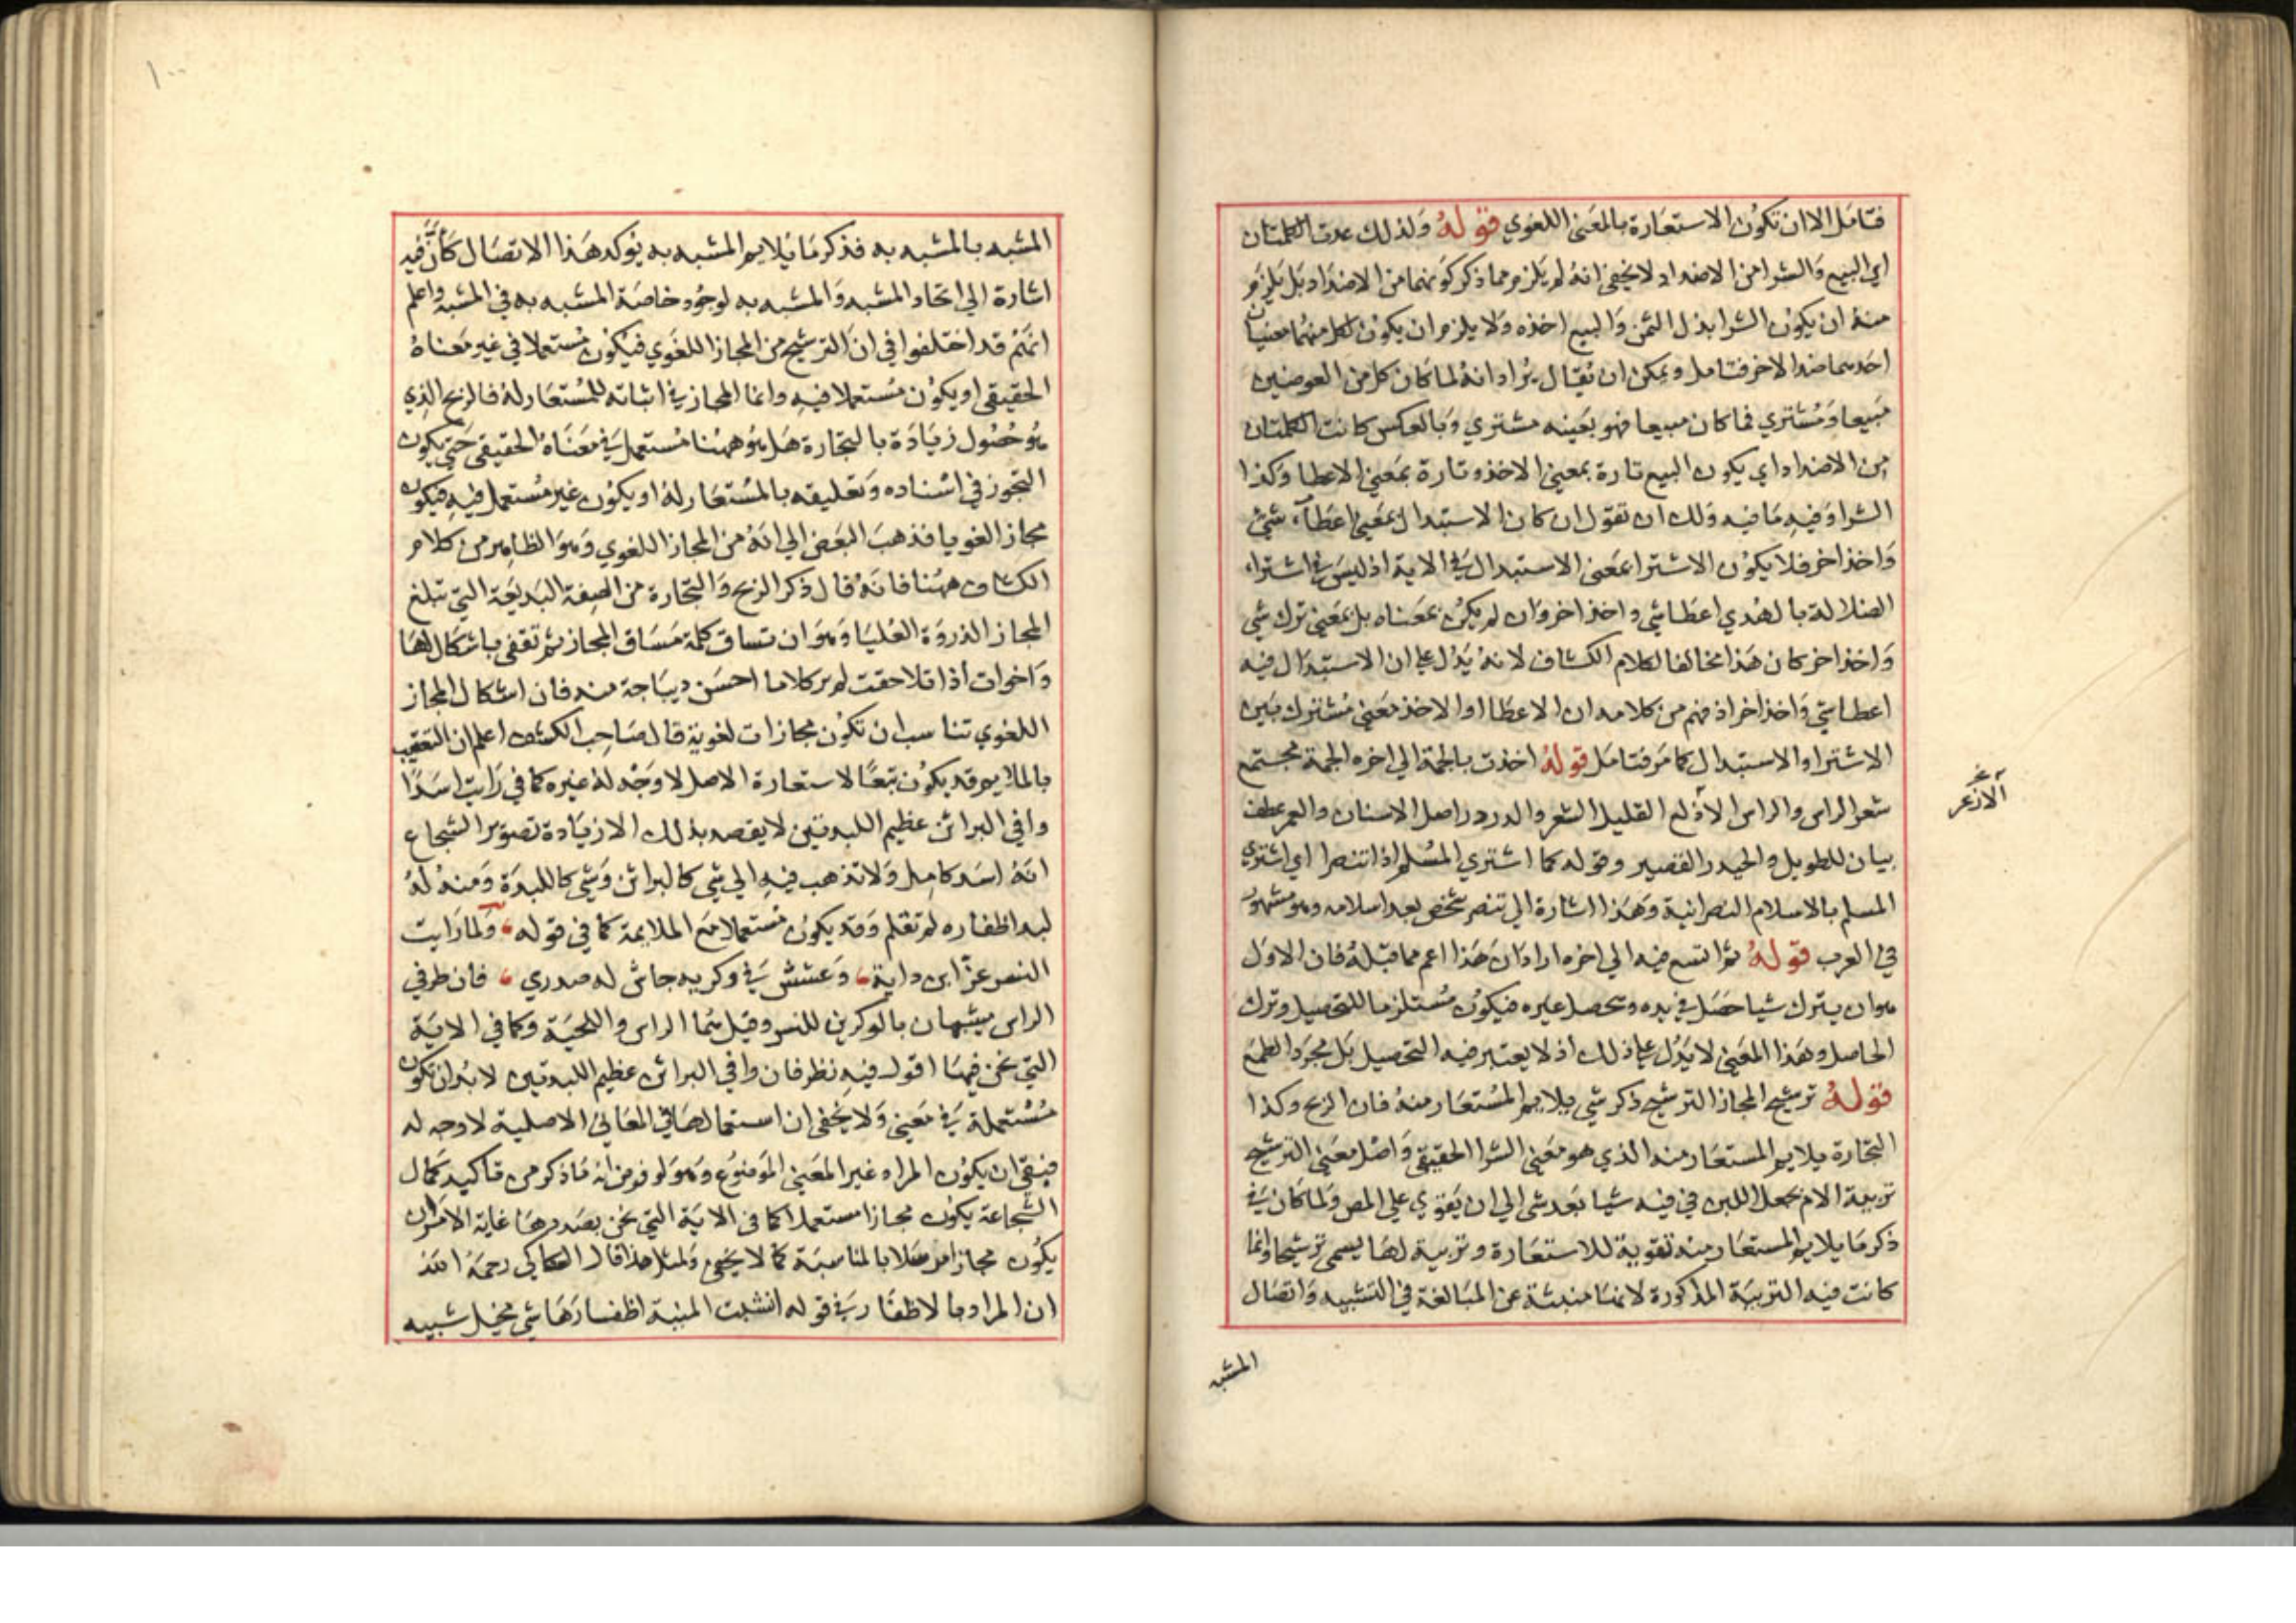 فتامل الا ان تكون الاستعارة بالمعنى اللغوي قوله ولذلك عدت الكلمتان
اي البيع والشرا من الاضداد لا يخفى انه لم يلزم مما ذكر كونهما من الاضداد بل يلزم
منه ان يكون الشرا بذل الثمن والبيع اخذه ولا يلزم ان يكون لكل منهما معنيان
احدهما ضد الاخر فتامل ويمكن ان يقال يراد انه لما كان كل من العوضين
مبيعا ومشتري فما كان مبيعا فهو بعينه مشتري وبالعكس كانت الكلمتان
من الاضداد اي يكون البيع تارة بمعنى الاخذ وتارة بمعنى الاعطا وكذا
الشرا وفيه ما فيه ولك ان تقول ان كان الاستبدال بمعنى اعطاء شئ
واخذ اخر فلا يكون الاشترا بمعنى الاستبدال في الاية اذ ليس في اشتراء
الضلالة بالهدي اعطا شي واخذ اخر وان لم يكن بمعناه بل بمعنى ترك شي
واخذ اخر كان هذا مخالفا لكلام الكشاف لانه يدل على ان الاستبدال فيه
اعطا شي واخذ اخر اذ فهم من كلامه ان الاعطا او الاخذ معنى مشترك بين
الاشترا والاستبدال كما مر فتامل قوله اخذت بالجمة الي اخره الجمة مجتمع
شعر الراس والراس الازلع القليل الشعر والدردر اصل الاسنان والعمر عطف
آلازعر
بيان للطويل والحيدر القصير وقوله كما اشتري المسلم اذا تنصرا اي اشتري
المسلم بالاسلام النصرانية وهذا اشارة الي تنصر شخص بعد اسلامه وهو مشهور
في العرب قوله ثم اتسع فيه الي اخره اراد ان هذا اعم مما قبله فان الاول
هو ان يترك شيا حصل في يده وتحصل غيره فيكون مستلزما للتحصيل وترك
الحاصل وهذا المعنى لا يدل على ذلك اذ لا يعتبر فيه التحصيل بل مجرد الطمع
قوله ترشيح المجاز الترشيح ذكر شي يلايم المستعار منه فان الربح وكذا
التجارة يلايم المستعار منه الذي هو معنى الشرا الحقيقي واصل معنى الترشيح
تربية الام بجعل اللبن في فيه شيا بعد شي الي ان يقوي علي المص ولما كان في
ذكر ما يلايم المستعار منه تقوية للاستعارة وتربية لها يسمى ترشيحا وانما
كانت فيه التربية المذكورة لانها منبئة عن المبالغة في التشبيه واتصال
المشبه
١٠٠
المشبه بالمشبه به فذكر ما يلايم المشبه به يوكد هذا الاتصال كأنّ فيه
اشارة الي اتحاد المشبه والمشبه به لوجود خاصة المشبه به في المشبه واعلم
انهم قد اختلفوا في ان الترشيح من المجاز اللغوي فيكون مستعملا في غير معناه
الحقيقي او يكون مستعملا فيه وانما المجاز في اثباته للمستعار له فالربح الذي
هو حصول زيادة بالتجارة هل هو ههنا مستعمل في معناه الحقيقي حتي يكون
التجوز في اسناده وتعليقه بالمستعار له او يكون غير مستعمل فيه فيكون
مجاز الغويا فذهب البعض الي انه من المجاز اللغوي وهو الظاهر من كلام
الكشاف ههنا فانه قال ذكر الربح والتجارة من الصيغة البديعة التي تبلغ
المجاز الذروة العليا وهو ان تساق كلمة مساق المجاز ثم تقفى باشكال لها
واخوات اذا تلاحقت لم تر كلاما احسن ديباجة منه فان اشكال المجاز
اللغوي تناسب ان تكون مجازات لغوية قال صاحب الكشف اعلم ان التعقيب
بالملايم قد يكون تبعا لاستعارة الاصل لا وجه له غيره كما في رايت اسدا
وافي البراثن عظيم اللبدتين لا يقصد بذلك الا زيادة تصوير الشجاع
انه اسد كامل ولا تذهب فيه الي شي كالبراثن وشي كاللبدة ومنه له
لبد اظفاره لم تقلم وقد يكون مستعملا مع الملايمة كما في قوله ولما رايت
النسر عز ابن داية وعشش في وكريه جاش له صدري فان طرفي
الراس يشبهان بالوكرين للنسر وقيل هما الراس واللحية وكما في الاية
التي نحن فيها اقول فيه نظر فان وافي البراثن عظيم اللبدتين لا بد ان تكون
مستعملة في معنى ولا يخفى ان استعمالها في المعاني الاصلية لا وجه له
فبقي ان يكون المراد غير المعنى الموضوع وهو لو فرض انه ما ذكر من تاكيد كمال
الشجاعة يكون مجازا مستعملا كما في الاية التي نحن بصددها غاية الامر ان
يكون مجازا مرسلا بالمناسبة كما لا يخفى ولمثل هذا قال السكاكي رحمه الله
ان المراد بالاظفار في قوله انشبت المنية اظفارها شي مخيل شبيه